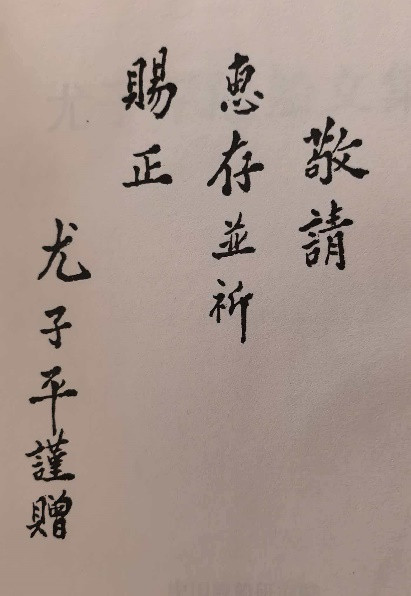 敬請
惠存並祈
賜正
尤子平謹贈